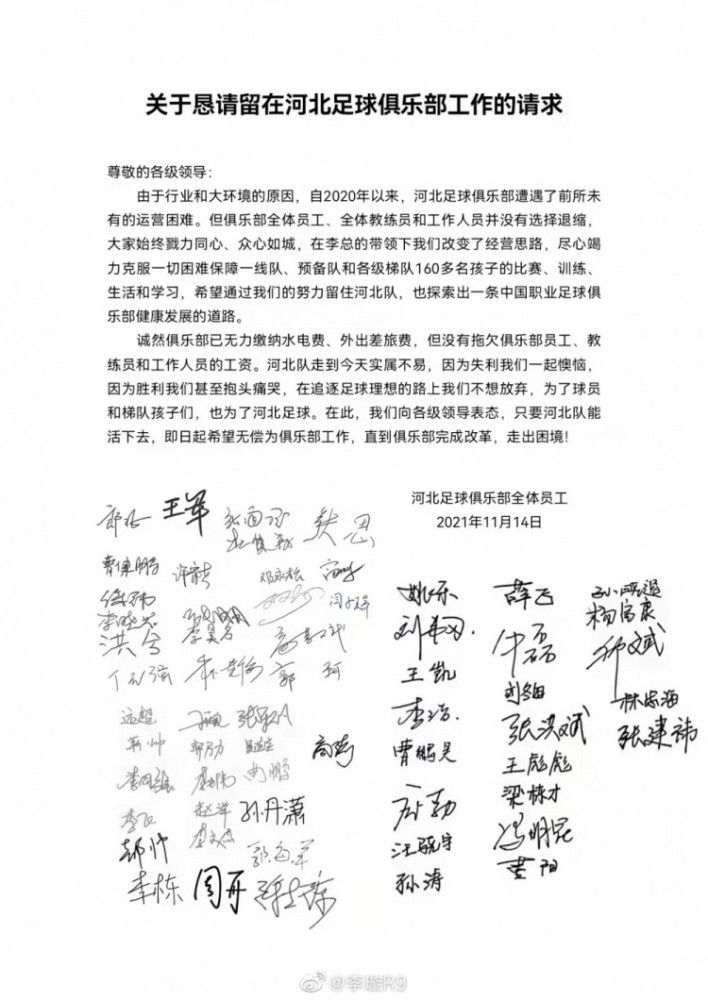 关于恳请留在河北足球俱乐部工作的请求
尊敬的各级领导：
由于行业和大环境的原因，自2020年以来，河北足球俱乐部遭遇了前所未
有的运营困难。但俱乐部全体员工、全体教练员和工作人员并没有选择退缩，
大家始终戮力同心、众心如城，在李总的带领下我们改变了经营思路，尽心竭
力克服一切困难保障一线队、预备队和各级梯队160多名孩子的比赛、训练、
生活和学习，希望通过我们的努力留住河北队，也探索出一条中国职业足球俱
乐部健康发展的道路。
诚然俱乐部已无力缴纳水电费、外出差旅费，但没有拖欠俱乐部员工、教
练员和工作人员的工资。河北队走到今天实属不易，因为失利我们一起懊恼，
因为胜利我们甚至抱头痛哭，在追逐足球理想的路上我们不想放弃，为了球员
和梯队孩子们，也为了河北足球。在此，我们向各级领导表态，只要河北队能
活下去，即日起希望无偿为俱乐部工作，直到俱乐部完成改革，走出困境！
河北足球俱乐部全体员工
2021年11月14日
王军
姚乐
薛飞
杨富康
洪兮
王凯
郭珂
林宏海
远超
李浩
张洪斌
张建祎
曹鹏昊
王彪彪
梁栋才
孙丹潇
汪晓宇
冯明昆
郝帅
黄阳
孙涛
李栋
周冉
@李璇R9